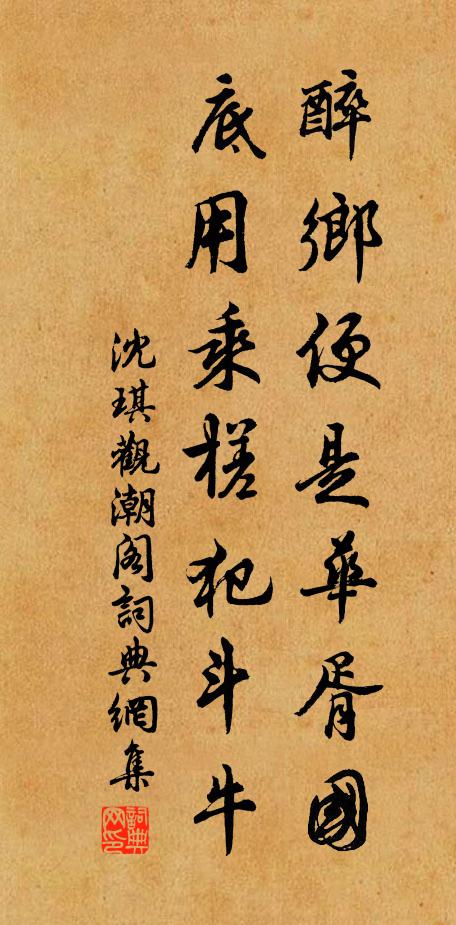 醉鄉便是華胥國
底用乘槎犯斗牛
沈琪觀潮閣詞典網集
詞典网印